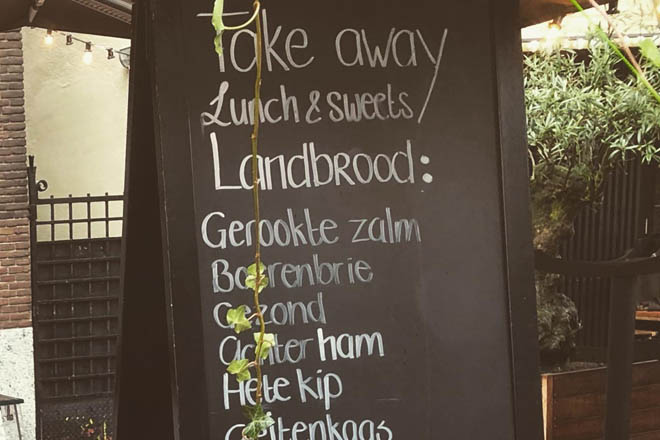 Take away
Lunch & sweets
Landbrood:
Gerookte zalm
Boerenbrie
Gezond
Achterham
Hete kip
Geitenkaas